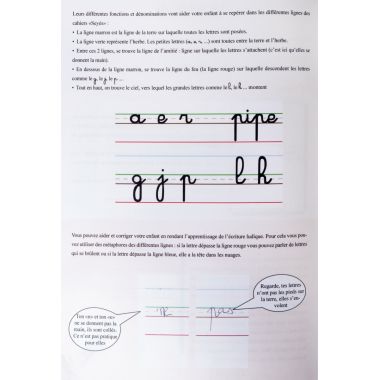 Leurs différentes fonctions et dénominations vont aider votre enfant à se repérer dans les différentes lignes des
cahiers «Seyès» :
• La ligne marron est la ligne de la terre sur laquelle toutes les lettres sont posées.
• La ligne verte représente l'herbe. Les petites lettres (m, u, r, ...) sont toutes entre la terre et l'herbe.
• Entre ces 2 lignes, se trouve la ligne de l'amitié : ligne sur laquelle les lettres s'attachent (c'est ici qu'elles se
donnent la main).
• En dessous de la ligne marron, se trouve la ligne du feu (la ligne rouge) sur laquelle descendent les lettres
comme le g, le g, le p ...
• Tout en haut, on trouve le ciel, vers lequel les grandes lettres comme le l, le h, ... montent
a e r pipe
g j p l h
Vous pouvez aider et corriger votre enfant en rendant l'apprentissage de l'écriture ludique. Pour cela vous pou-
vez utiliser des métaphores des différentes lignes : si la lettre dépasse la ligne rouge vous pouvez parler de lettres
qui se brûlent ou si la lettre dépasse la ligne bleue, elle a la tête dans les nuages.
Regarde, tes lettres
n'ont pas les pieds sur
la terre, elles s'en-
volent
ne se donnent pas la
main, ils sont collés.
Ce n'est pas pratique
pour elles